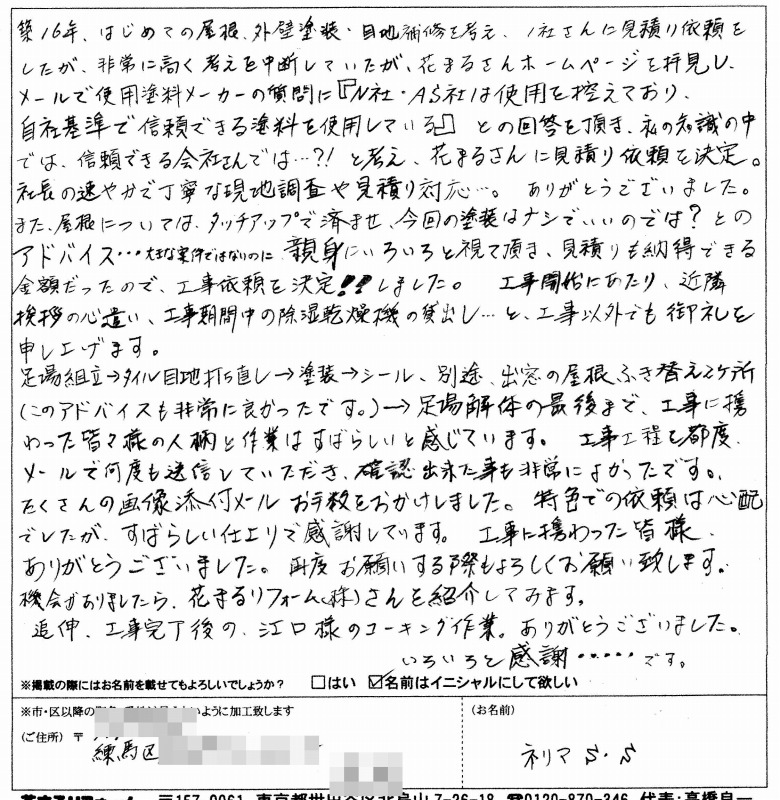 築16年、はじめての屋根、外壁塗装・目地補修を考え、1社さんに見積り依頼を
したが、非常に高く考えを中断していたが、花まるさんホームページを拝見し、
メールで使用塗料メーカーの質問に『N社・AS社は使用を控えており、
自社基準で信頼できる塗料を使用している』との回答を頂き、私の知識の中
では、信頼できる会社さんでは…?!と考え、花まるさんに見積り依頼を決定。
社長の速やかで丁寧な現地調査や見積り対応…。ありがとうございました。
また、屋根については、タッチアップで済ませ、今回の塗装はナシでいいのでは?との
アドバイス…大きな案件ではないのに親身にいろいろと視て頂き、見積りも納得できる
金額だったので、工事依頼を決定!!しました。工事開始にあたり、近隣
挨拶の心遣い、工事期間中の除湿乾燥機の貸出し…と、工事以外でも御礼を
申し上げます。
足場組立→タイル目地打ち直し→塗装→シール、別途、出窓の屋根ふき替え2ヶ所
(このアドバイスも非常に良かったです。)→足場解体の最後まで、工事に携
わった皆々様の人柄と作業はすばらしいと感じています。工事工程を都度、
メールで何度も送信していただき、確認出来た事も非常によかったです。
たくさんの画像添付メールお手数をおかけしました。特色での依頼は心配
でしたが、すばらしい仕上りで感謝しています。工事に携わった皆様、
ありがとうございました。再度お願いする際もよろしくお願い致します。
機会がありましたら、花まるリフォーム(株)さんを紹介してみます。
追伸、工事完了後の、江口様のコーキング作業。ありがとうございました。
いろいろと感謝……です。
※掲載の際にはお名前を載せてもよろしいでしょうか? □はい ☑名前はイニシャルにして欲しい
※市・区以降の ないように加工致します
(お名前)
(ご住所) 〒
練馬区
ネリマ S・S
花まるリフォーム 〒157-0061 東京都世田谷区北烏山7-26-18 ☎0120-870-346 代表:高橋良一